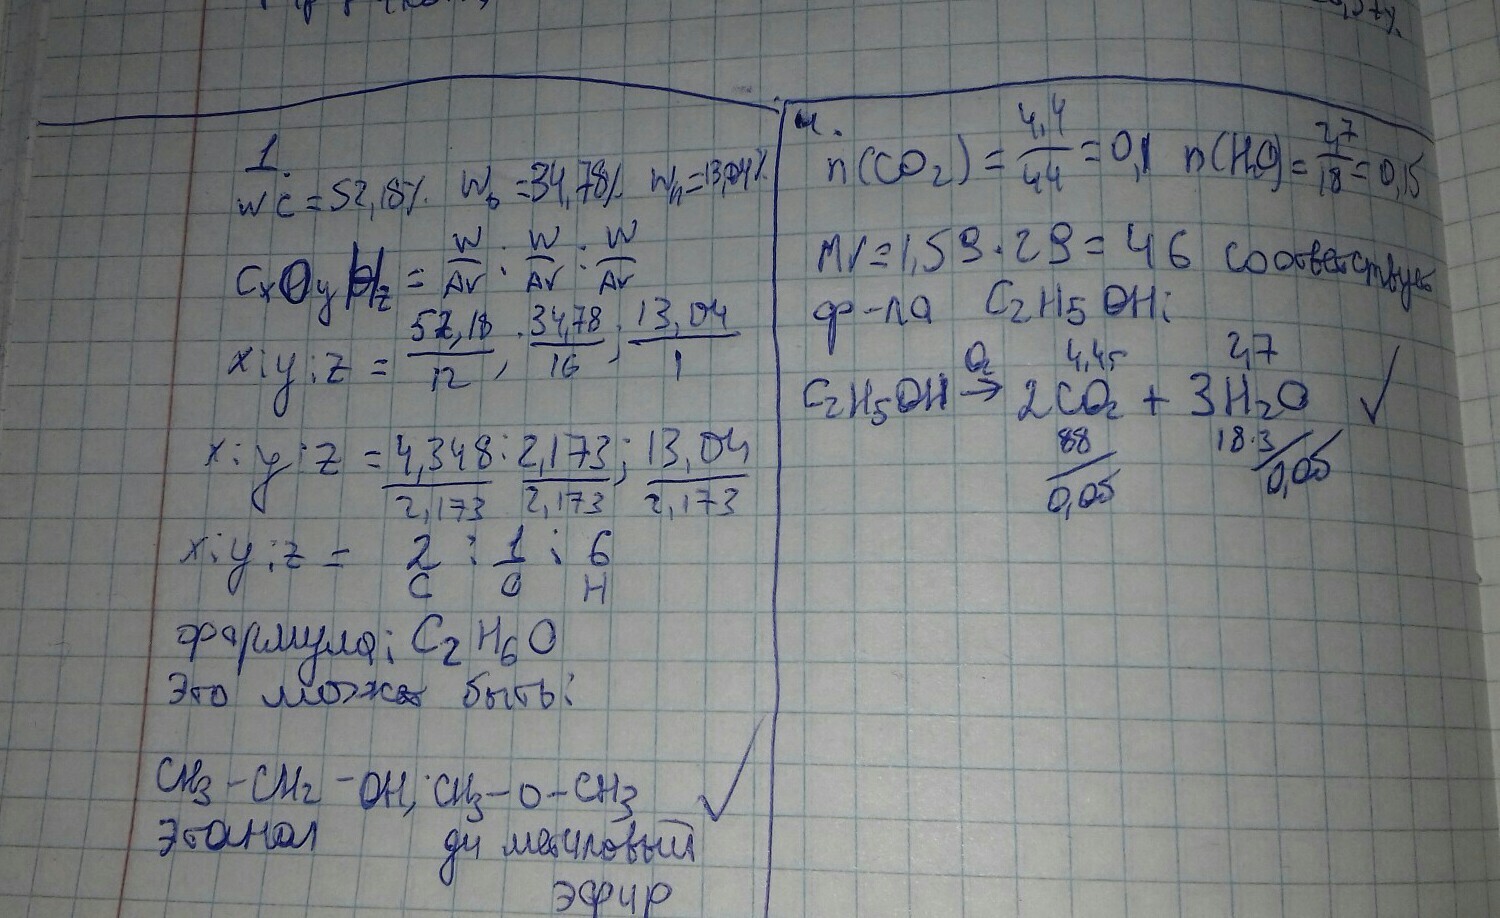 1.
WC = 52,18% Wo = 34,78% Wн = 13,04%
CxOyHz = W/Ar : W/Ar : W/Ar
x:y:z = 52,18/12 : 34,78/16 : 13,04/1
x:y:z = 4,348/2,173 : 2,173/2,173 : 13,04/2,173
x:y:z = 2 : 1 : 6
C O H
формула: C2H6O
Это может быть:
CH3-CH2-OH, CH3-O-CH3
Этанол диметиловый
эфир
4.
n(CO2) = 4,4/44 = 0,1 n(H2O) = 2,7/18 = 0,15
Mr = 1,59·29 = 46 соответствует
ф-ла C2H5OH:
O2 4,45 2,7
C2H5OH → 2CO2 + 3H2O
88 18·3
0,05 0,05